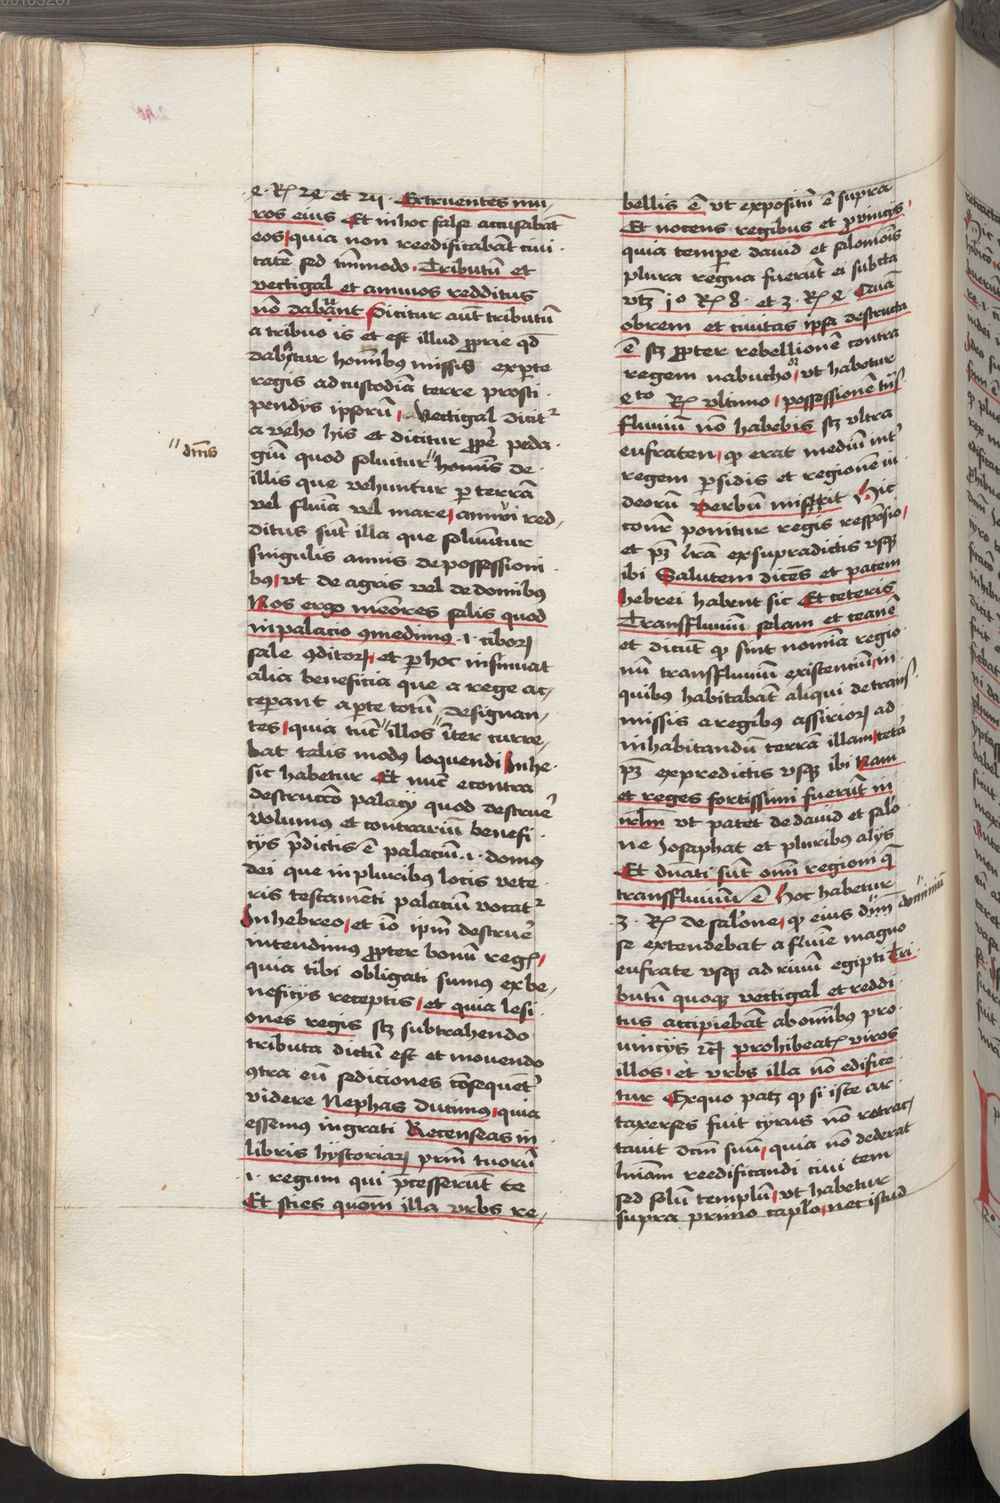 e · Rꝫ 24 · et 25 · Extruentes mu-
ros eius Et in hoc false accusabāt
eos quia non reedificabāt civi-
tatē sed tm̄modo · Tributū et
vectigal et annuos redditus
nō dabunt Dicitur aut̄ tributū
a tribuo is et est illud ꝓprie qd
dabatur homībus missis ex ꝑte
regis ad custodiā terre pro sti-
pendijs ipsorū · Vectigal dicit̄
a veho his et dicitur ꝓpe peda-
giū quod soluitur " homīs de
" dm̄s
illis que vehuntur per terrā
vel fluviā vel mare annui red-
ditus sūt illa que soluūtur
singulis annis de possessioni-
bꝰ ut de agris vel de domibus
Nos ergo memōres salis quod
in palacio ꝯmedimus ·i· ciborꝝ
sale ꝯditorꝝ et per hoc insinuat
alia beneficia que a rege ac-
ceperant a ꝑte totū designan-
tes quia tūc " illos " īter curre-
bat talis modus loquendi In he-
sic habetur Et nūc econtra
destructōꝫ palacij quod destruē
volumus et contrariū benefi-
cijs p̄dictis ē palaciū ·i· domus
dei que in pluribus locis vete-
ris testamēti palaciū vocat̄
In hebreo et iō ipm̄ destruē
intendimus ꝓpter bonū regꝭ
quia tibi obligati sumus ex be-
neficijs receptis et quia lesi-
ones regis scꝫ subtrahendo
tributa dictū est et movendo
ꝯtra eū sediciones cōsequēt̄
videre Nephas ducimus quia
essemus ingrati Recenseas in
libris hystoriarꝝ prm̄ tuorū
·i· regum qui p̄cesserūt te
Et scies quoniā illa vrbs re-
bellis ē vt expositū ē supra
Et nocens regibus et provīcijs
quia tempe david et salomōis
plura regna fuerūt ei subiecta
vtꝫ 1º Rꝫ 8 · et 3 · Rꝫ 4 Quā
obrem et civitas ipsa destructa
ē scꝫ ꝓpter rebellionē contra
regem nabucho ut habetur
4to Rꝫ ultimo possessionē trās
fluviū nō habebis scꝫ ultra
eufraten ꝙ erat mediū int̄
regem ꝑsidis et regionē iu-
deorū Verbum misit Hic
cōnr ponitur regis respōsio
et pꝫ lr̄am ex supradictis vsqꝫ
ibi Salutem dicēs et pacem
hebrei habent sic Et ceteris
Transfluviū selam et ceanē
et dicūt ꝙ sint nomina regio-
nū transfluviū existenciū in
quibus habitabāt aliqui de trans-
missis a regibus assiriorꝝ ad
inhabitandū terrā illam cetā
pꝫ ex predictis vsqꝫ ibi Nam
et reges fortissimi fuerūt in
irlm ut patet de david et salo-
ne Josaphat et pluribus alijs
Et dnati sūt omī regioni q̄
transfluviū ē Hoc habetur
3 · Rꝫ de salone ꝙ eius dīm " dominiū
se extendebat a fluīe magno
eufrate vsqꝫ ad rivū egipti Tri-
butū quoqꝫ vectigal et reddi-
tus accipiebāt ab omībus pro-
vincijs · prohibeatꝭ viros
illos et vrbs illa nō edifice-
tur Ex quo patꝫ ꝙ si iste ar-
taxerses fuit cyrus nō retrac-
tavit dcm̄ suū quia nō dederat
lniam reedificandi civitem
sed solū templū ut habetur
supra primo caplo nec istud